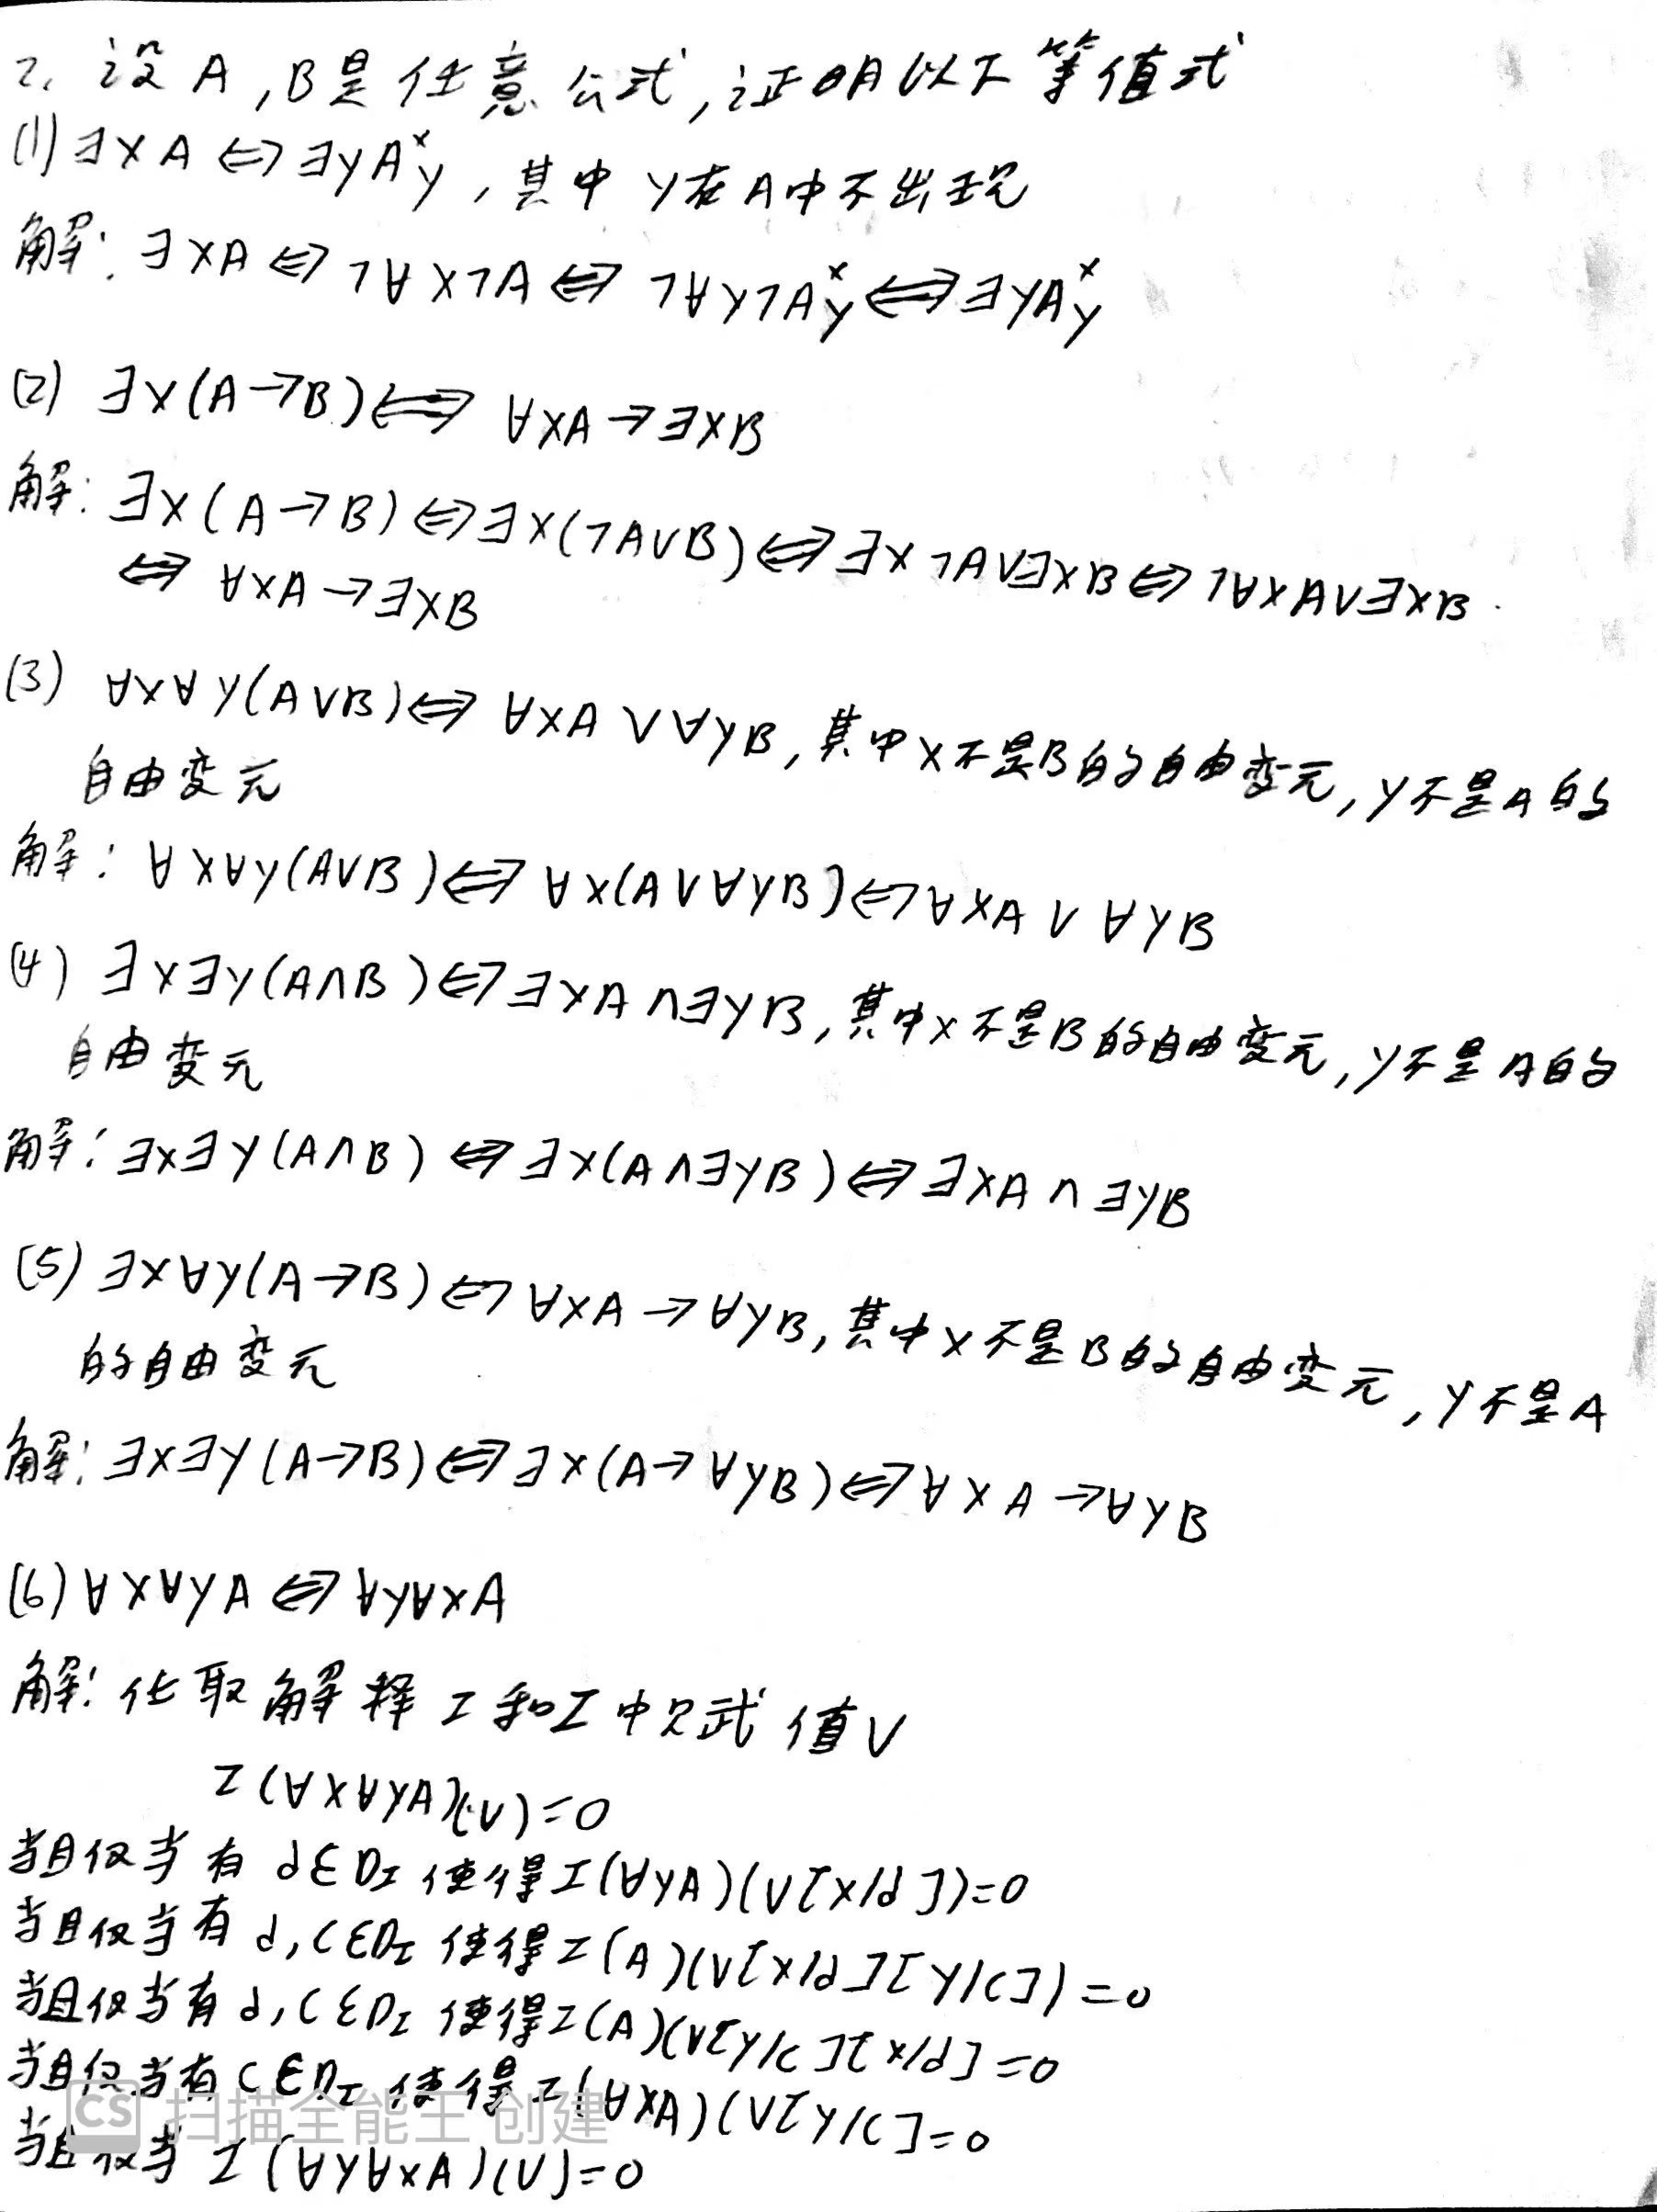 2. 设 A,B是任意公式,证明以下等值式
(1) ∃xA ⇔ ∃yA^x_y ,其中 y在A中不出现
解: ∃xA ⇔ ¬∀x¬A ⇔ ¬∀y¬A^x_y ⇔ ∃yA^x_y
(2) ∃x(A→B) ⇔ ∀xA → ∃xB
解: ∃x(A→B) ⇔ ∃x(¬A∨B) ⇔ ∃x¬A∨∃xB ⇔ ¬∀xA∨∃xB
⇔ ∀xA → ∃xB
(3) ∀x∀y(A∨B) ⇔ ∀xA ∨ ∀yB, 其中x不是B的自由变元, y不是A的
自由变元
解: ∀x∀y(A∨B) ⇔ ∀x(A∨∀yB) ⇔ ∀xA ∨ ∀yB
(4) ∃x∃y(A∧B) ⇔ ∃xA∧∃yB, 其中x不是B的自由变元, y不是A的
自由变元
解: ∃x∃y(A∧B) ⇔ ∃x(A∧∃yB) ⇔ ∃xA ∧ ∃yB
(5) ∃x∀y(A→B) ⇔ ∀xA → ∀yB, 其中x不是B的自由变元, y不是A
的自由变元
解: ∃x∃y(A→B) ⇔ ∃x(A→∀yB) ⇔ ∀xA → ∀yB
(6) ∀x∀yA ⇔ ∀y∀xA
解: 任取解释 I 和I中 值V
I(∀x∀yA)(V)=0
当且仅当有 d∈D_I 使得I(∀yA)(V[x/d])=0
当且仅当有 d,c∈D_I 使得I(A)(V[x/d][y/c])=0
当且仅当有 d,c∈D_I 使得I(A)(V[y/c][x/d]=0
当且仅当有 c∈D_I 使得I(∀xA)(V[y/c]=0
当且仅当 I(∀y∀xA)(V)=0
CS 扫描全能王 创建